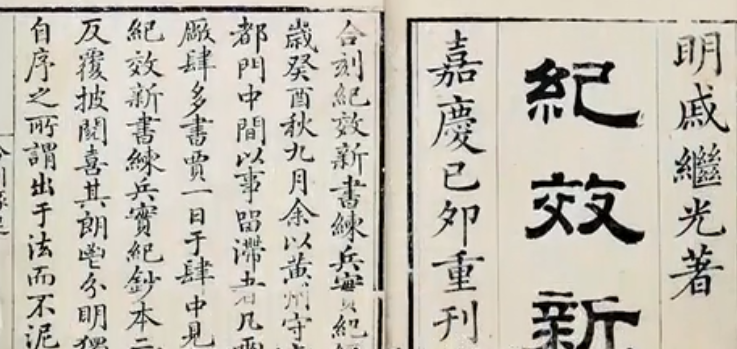 明戚繼光著
紀效新
嘉慶己卯重刊
合刻紀效新書練兵實紀
歲癸酉秋九月余以黃州守
都門中間以事留滯者凡兩
廠肆多書賈一日于肆中見
紀效新書練兵實紀鈔本二
反覆披閱喜其朗鬯分明獨
自序之所謂出于法而不泥